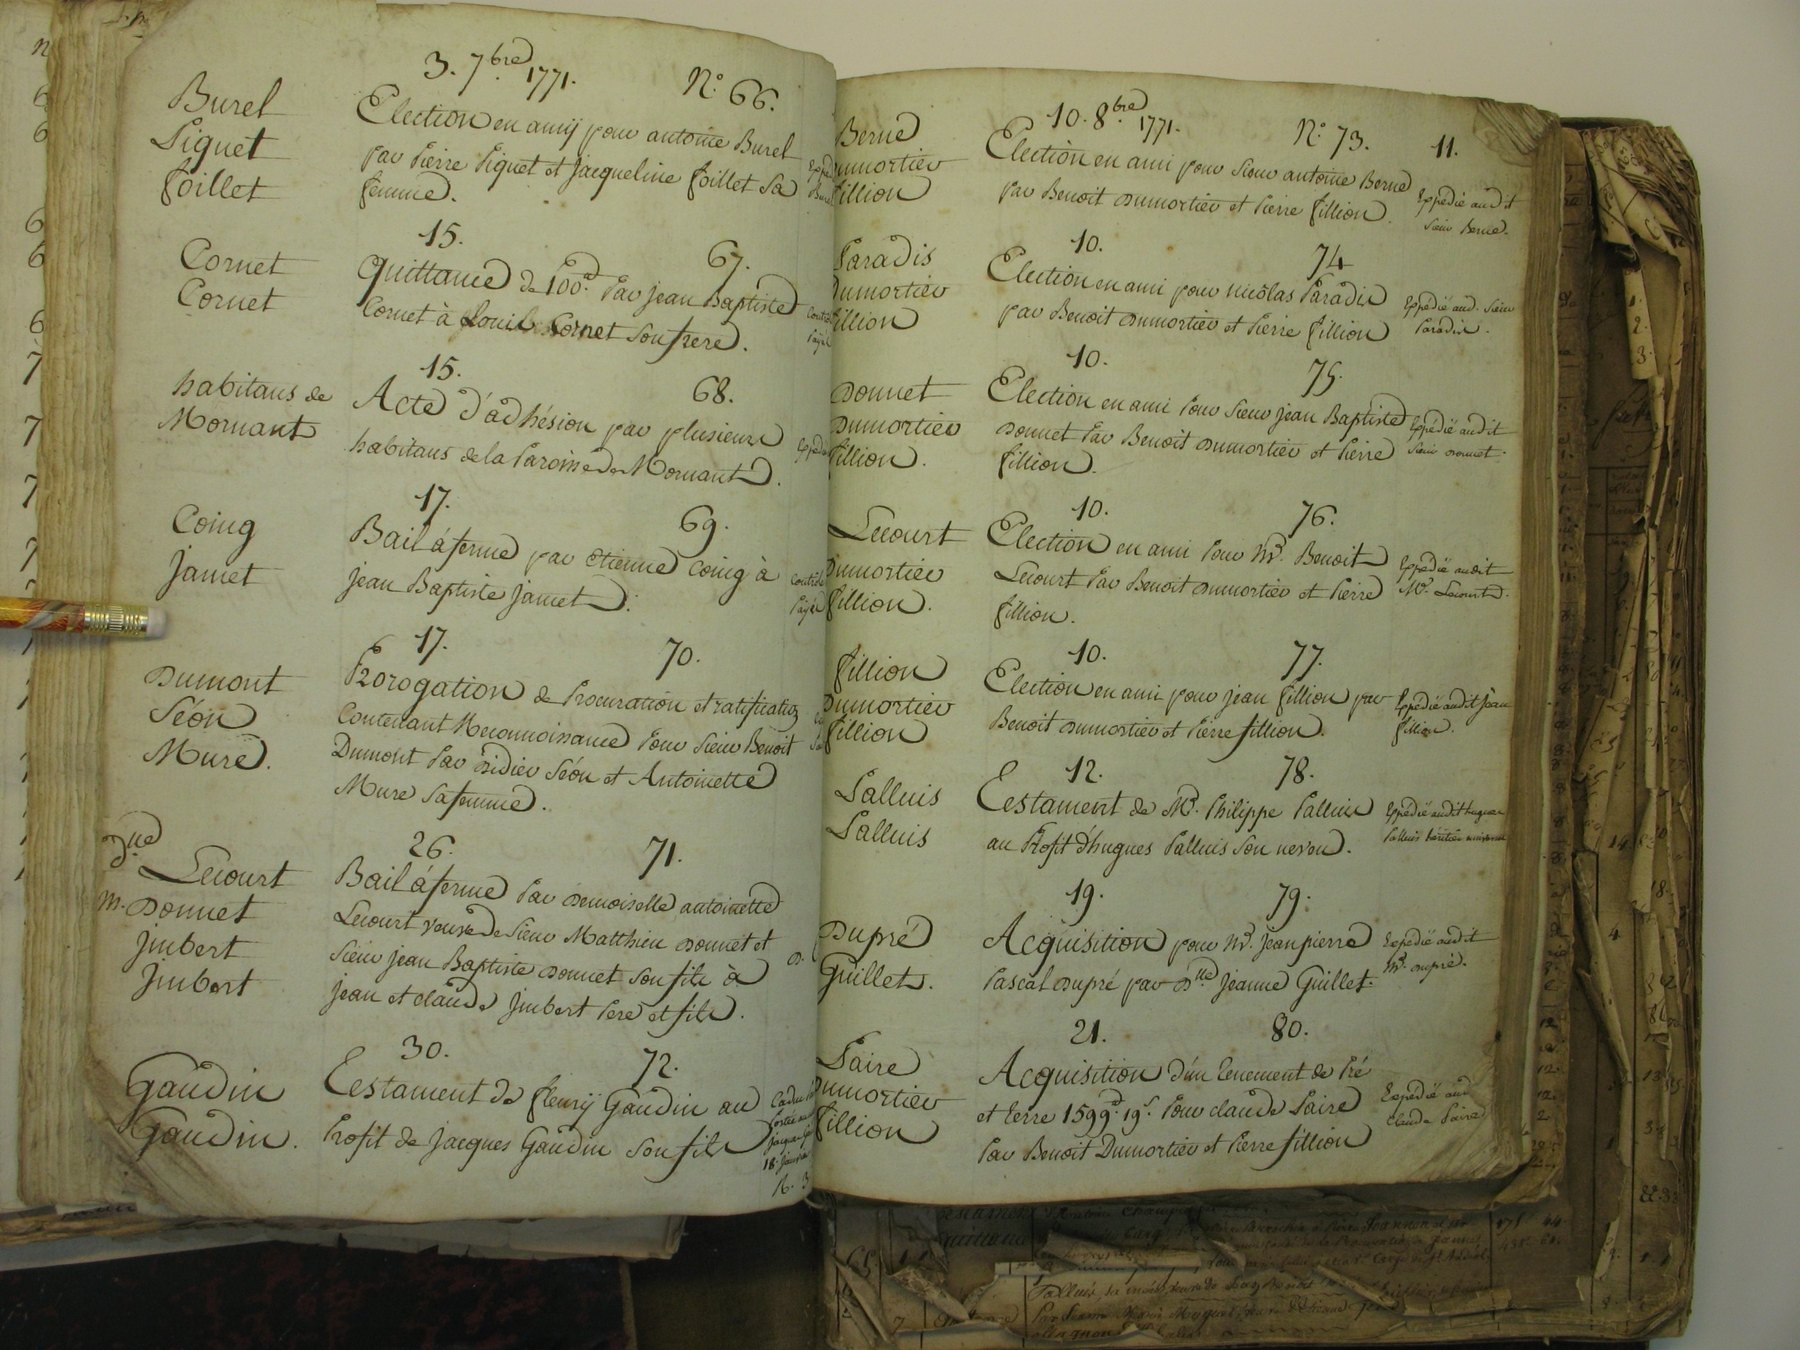 3. 7bre 1771. N° 66.
Burel
Piguet
foillet
Election en amÿ pour antoine Burel
par Pierre Piguet et Jacqueline foillet Sa
femme.
15. 67.
Cornet
Cornet
Quittance de 100d. Par jean Baptiste
Cornet à Louis Cornet Son frere.
15. 68.
habitans de
Mornant
Acte d'adhésion par plusieurs
habitans de la Paroisse de Mornant.
17. 69.
Coing
Jamet
Bail à ferme par Etienne Coing à
Jean Baptiste Jamet.
17. 70.
Dumont
Séon
Mure.
Prorogation de Procuration et ratification
Contenant Reconnoissance Pour Sieur Benoit
Dumont Par Didier Séon et Antoinette
Mure Sa femme.
26. 71.
Dlle
Lecourt
M. Donnet
Jmbert
Jmbert
Bail à ferme Par Demoiselle antoinette
Lecourt veuve de Sieur Matthieu Donnet et
Sieur Jean Baptiste Donnet Son fils à
Jean et claude Jmbert Pere et fils.
30. 72.
Gaudin
Gaudin.
Testament de fleurÿ Gaudin au
Profit de Jacques Gaudin Son fils
10. 8bre 1771. N° 73. 11.
Berne
Dumortier
fillion
Election en ami pour Sieur antoine Berne
par Benoit Dumortier et Pierre fillion.
Expedié audit
Sieur Berne.
10. 74
Paradis
Dumortier
fillion
Election en ami pour nicolas Paradis
par Benoit Dumortier et Pierre fillion
Expedié aud. Sieur
Paradis.
10. 75.
Donnet
Dumortier
fillion.
Election en ami Pour Sieur jean Baptiste
Donnet Par Benoit Dumortier et Pierre
fillion.
Expédié audit
Sieur Donnet.
10. 76.
Lecourt
Dumortier
fillion.
Election en ami Pour Mr. Benoit
Lecourt Par Benoit Dumortier et Pierre
fillion.
Expédié audit
Mr. Lecourt.
10. 77.
fillion
Dumortier
fillion
Election en ami pour jean fillion par
Benoit Dumortier et Pierre fillion.
Expedié audit Jean
fillion.
12. 78.
Palluis
Palluis
Testament de Mr. Philippe Palluis
au Profit d'hugues Palluis Son neveu.
Expédié audit hugues
Palluis héritier universel
19. 79.
Dupré
Guillet.
Acquisition pour Mr. Jean pierre
Pascal Dupré par Dlle Jeanne Guillet.
Expédié audit
Mr. Dupré.
21. 80.
Paire
Dumortier
fillion
Acquisition d'un tenement de Pré
et terre 1599d. 19s. Pour claude Paire
Par Benoit Dumortier et Pierre fillion
Expédié aud.
Claude Paire